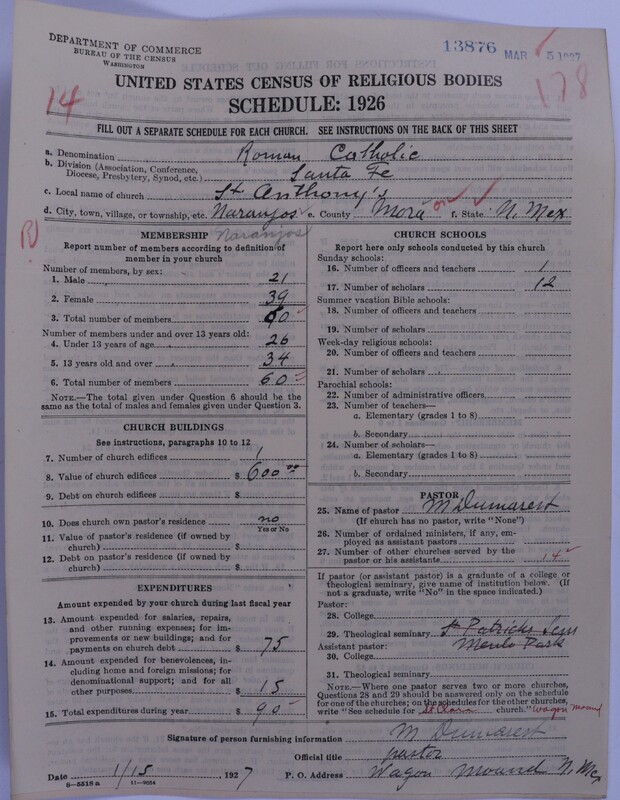 DEPARTMENT OF COMMERCE
BUREAU OF THE CENSUS
WASHINGTON
13876 MAR 5 1927
14
178
UNITED STATES CENSUS OF RELIGIOUS BODIES
SCHEDULE: 1926
FILL OUT A SEPARATE SCHEDULE FOR EACH CHURCH. SEE INSTRUCTIONS ON THE BACK OF THIS SHEET
a. Denomination Roman Catholic
b. Division (Association, Conference, Diocese, Presbytery, Synod, etc.) Santa Fe
c. Local name of church St Anthony's
d. City, town, village, or township, etc. Naranjos e. County Mora f. State N. Mex
Naranjos
MEMBERSHIP
Report number of members according to definition of
member in your church
Number of members, by sex:
1. Male 21
2. Female 39
3. Total number of members 60
Number of members under and over 13 years old:
4. Under 13 years of age 26
5. 13 years old and over 34
6. Total number of members 60
NOTE.—The total given under Question 6 should be
same as the total of males and females given under Question 3.
CHURCH BUILDINGS
See instructions, paragraphs 10 to 12
7. Number of church edifices 1
8. Value of church edifices $ 600.00
9. Debt on church edifices $
10. Does church own pastor's residence no
Yes or No
11. Value of pastor's residence (if owned by
church) $
12. Debt on pastor's residence (if owned by
church) $
EXPENDITURES
Amount expended by your church during last fiscal year
13. Amount expended for salaries, repairs,
and other running expenses; for im-
provements or new buildings; and for
payments on church debt $ 75
14. Amount expended for benevolences, in-
cluding home and foreign missions; for
denominational support; and for all
other purposes $ 15
15. Total expenditures during year $ 90
CHURCH SCHOOLS
Report here only schools conducted by this church
Sunday schools:
16. Number of officers and teachers 1
17. Number of scholars 12
Summer vacation Bible schools:
18. Number of officers and teachers
19. Number of scholars
Week-day religious schools:
20. Number of officers and teachers
21. Number of scholars
Parochial schools:
22. Number of administrative officers
23. Number of teachers—
a. Elementary (grades 1 to 8)
b. Secondary
24. Number of scholars—
a. Elementary (grades 1 to 8)
b. Secondary
PASTOR
25. Name of pastor M Dumarest
(If church has no pastor, write "None")
26. Number of ordained ministers, if any, em-
ployed as assistant pastors
27. Number of other churches served by the
pastor or his assistants 14
If pastor (or assistant pastor) is a graduate of a college or
theological seminary, give name of institution below. (If
not a graduate, write "No" in the space indicated.)
Pastor:
28. College
29. Theological seminary St Patricks Sem
Assistant pastor: Menlo Park
30. College
31. Theological seminary
NOTE.—Where one pastor serves two or more churches,
Questions 28 and 29 should be answered only on the schedule
for one of the churches; on the schedules for the other churches,
write "See schedule for St Clara church." Wagon mound
Signature of person furnishing information M Dumarest
Official title pastor
Date 1/15, 1927 P. O. Address Wagon Mound N. Mex
8—5518 a 11—9054